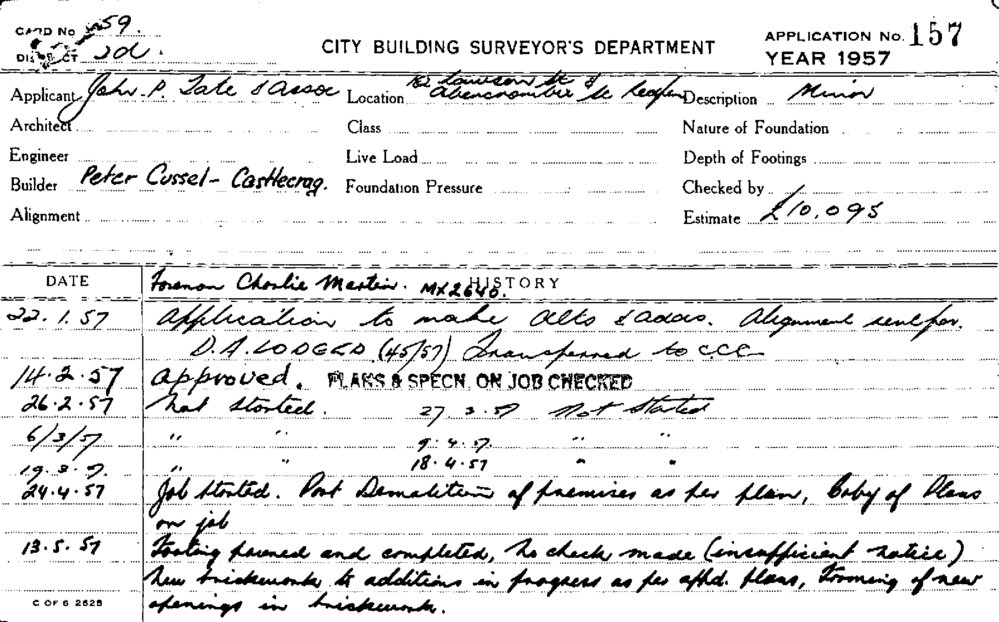 CARD No 59.
DISTRICT 2d
CITY BUILDING SURVEYOR'S DEPARTMENT
APPLICATION No. 157
YEAR 1957
Applicant John P. Tate & Assoc
Location 182 Lawson St & Abercrombie St Redfern
Description Minor
Architect
Class
Nature of Foundation
Engineer
Live Load
Depth of Footings
Builder Peter Cussel - Castlecrag.
Foundation Pressure
Checked by
Alignment
Estimate £10,095
DATE
HISTORY
Foreman Charlie Martin. MX2640.
22.1.57 Application to make alts & addns. Alignment sent for.
D.A. LODGED (45/57) Transferred to CCC
14.2.57 Approved. PLANS & SPECN. ON JOB CHECKED
26.2.57 Not Started. 27.3.57 Not Started
6/3/57 " " 9.4.57. " "
19.3.57. " " 18.4.57 " "
24.4.57 Job Started. Part Demolition of premises as per plan, Coby of Plans
on job
13.5.57 Footing poured and completed, no check made (insufficient notice)
New brickwork to additions in progress as per apbd. plans, Forming of new
openings in brickwork.
C OF S 2828